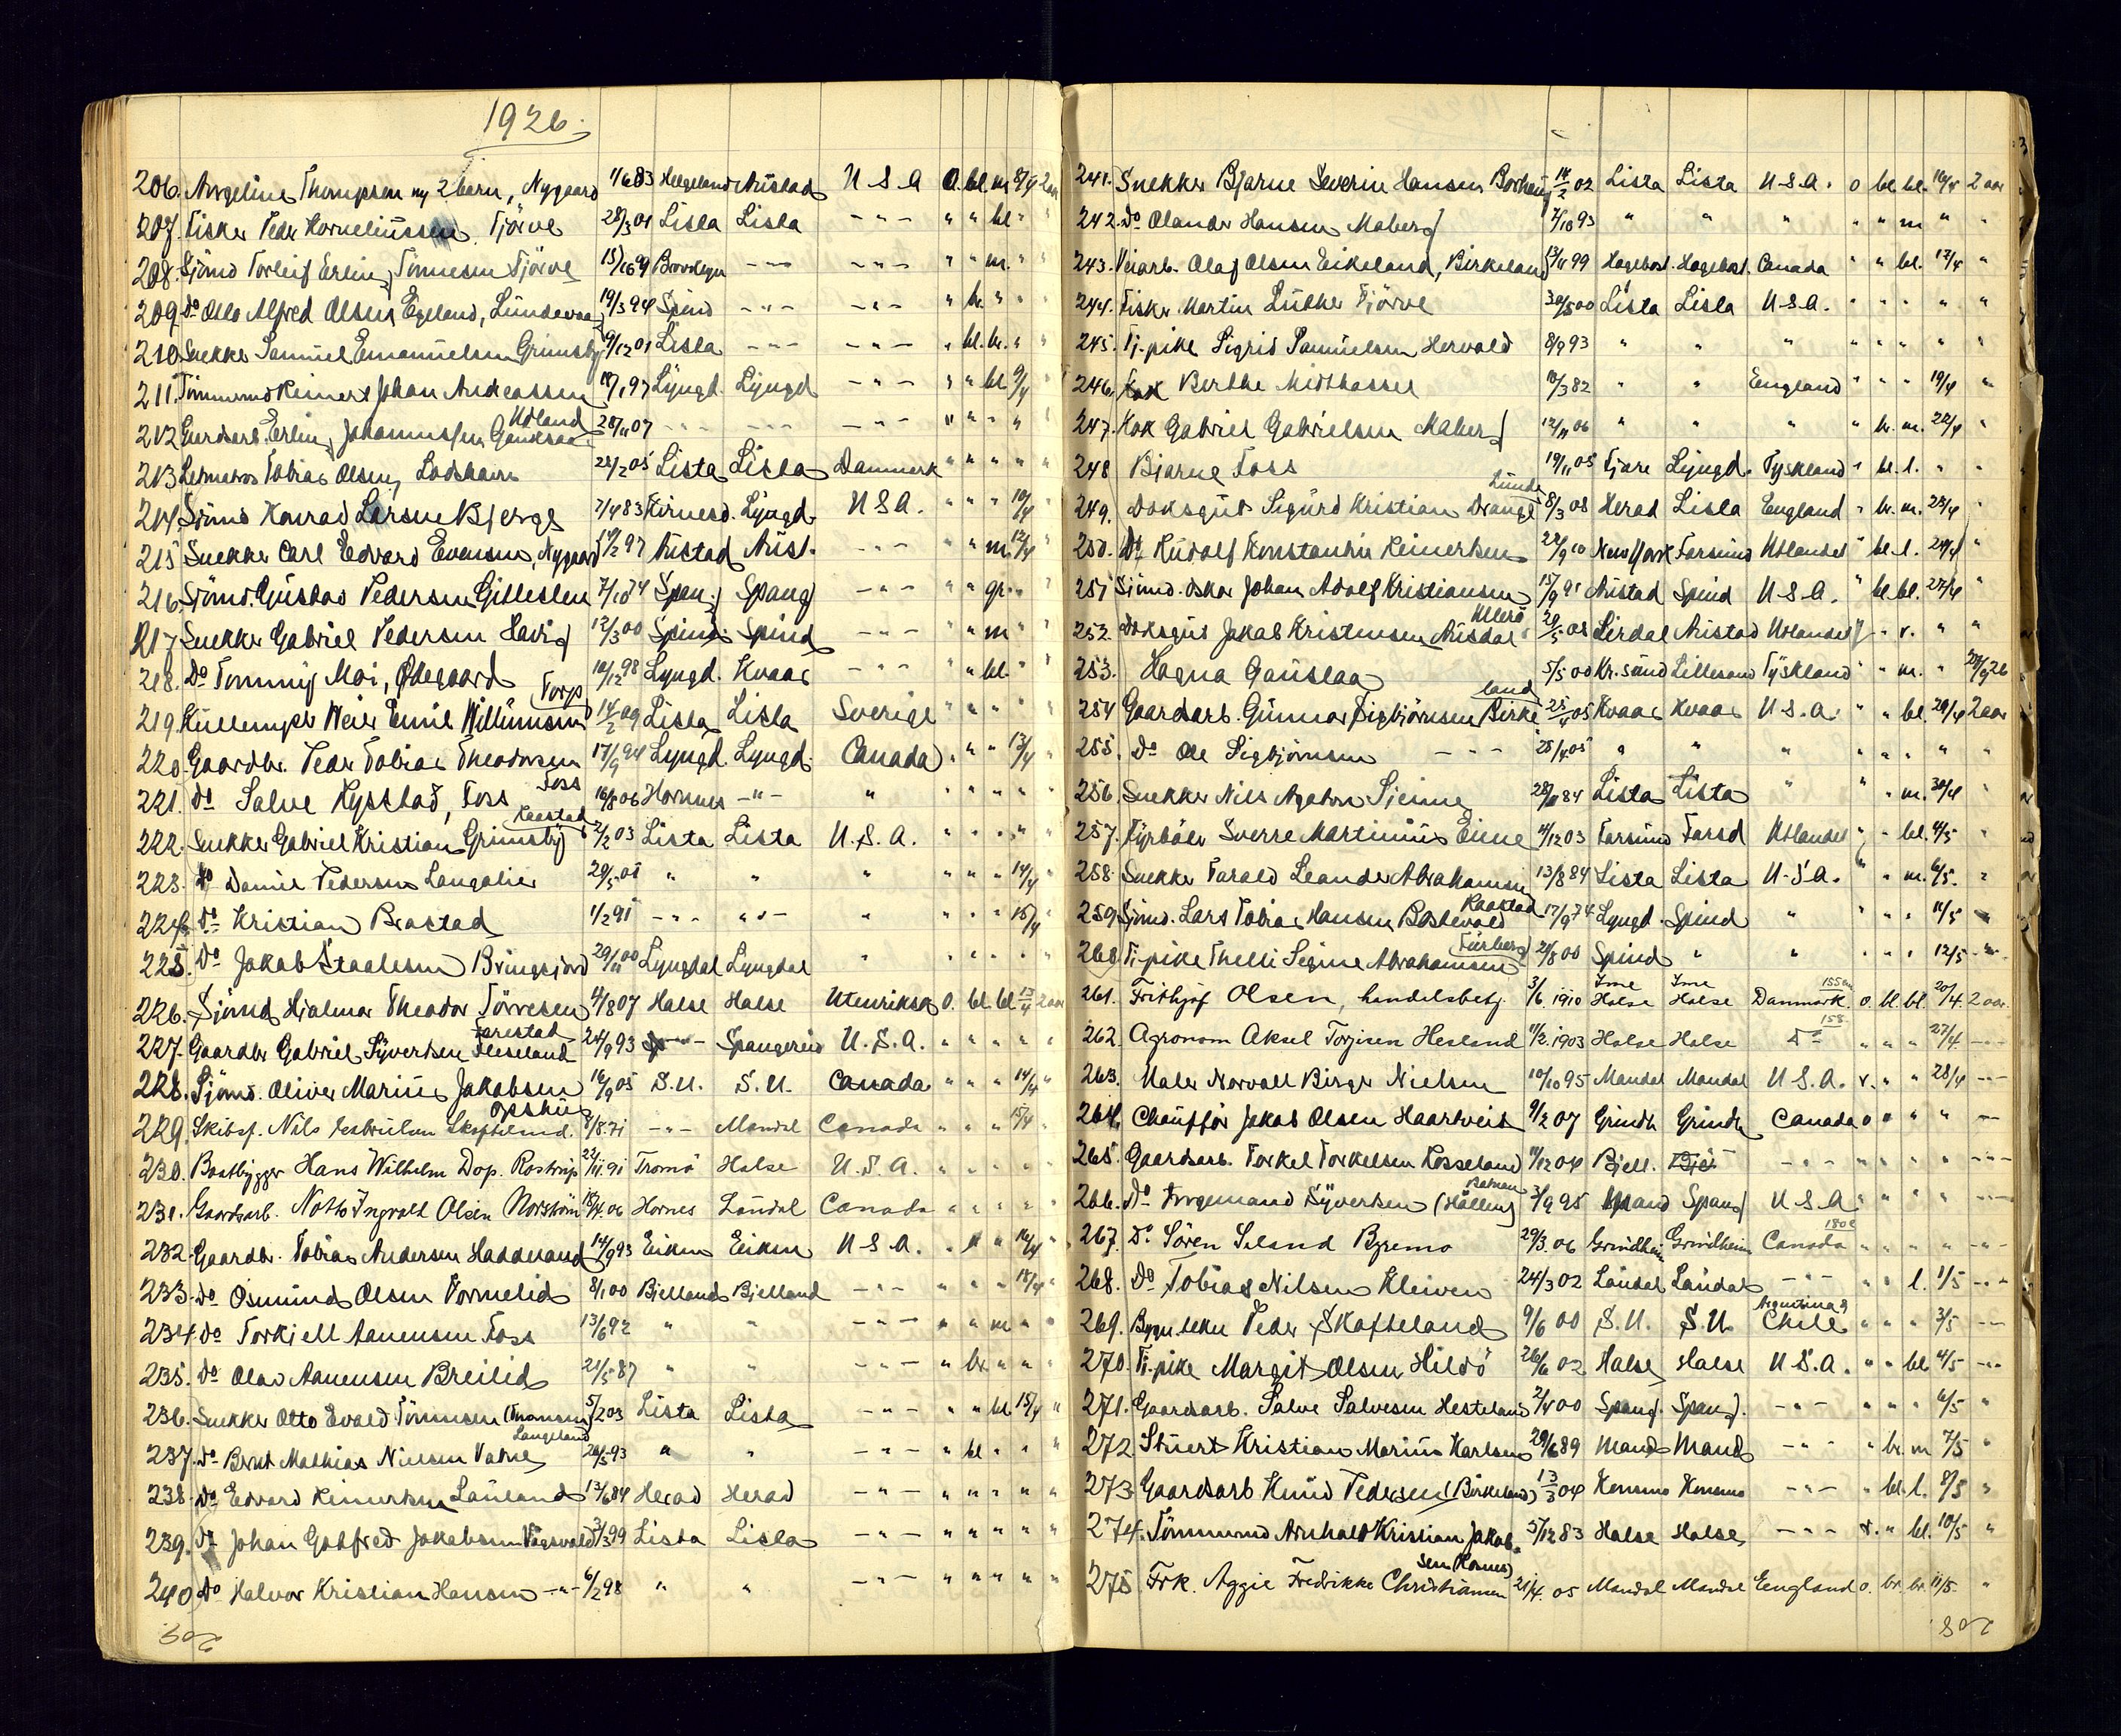 1926.
206. Angeline Thompson m/ 2 barn, Nygaard 1/6 83 Helgeland Austad U S A O. bl. m 8/4 2 aar
207. Fisker Peder Korneliussen Tjörve 28/3 01 Lista Lista -"- " " bl. " "
208. Sjömd Torleif Erling Tönnesen Tjörve 15/10 99 Brooklyn -"- -"- " " m. " "
209. Do Otto Alfred Olsen Egeland, Lundevaag 19/3 94 Spind -"- -"- " br. " " "
210. Snekker Samuel Emanuelsen Grimsby 9/12 01 Lista -"- -"- " bl. br. " "
211. Tömmermd Reinert Johan Andreassen 18/1 97 Lyngd. Lyngd -"- " " bl. 9/4 "
Udland
212 Gardsarb. Erling Johannessen Gauksaas 28/11 07 -"- -"- -"- " " " " "
213 Letmatros Tobias Olsen, Lodshavn 25/2 05 Lista Lista Danmark " " " " "
214. Sjömd Konrad Larsen Bjerge 7/4 83 Hitnesd. Lyngd. U S A. " " " 10/4 "
215 Snekker Carl Edvard Evensen, Nygaard 17/2 97 Austad Aust. -"- " " m. 12/4 "
216. Sjömd. Gustav Pedersen Gitleslen 7/10 74 Spang Spang -"- " " gr. " "
217 Snekker Gabriel Pedersen Having 12/3 00 Spind. Spind -"- " " m " "
218. Do Tommy Moi, Ødegaard 10/12 98 Lyngd. Kvaas -"- " bl. " "
Torp
219. Kullemper Meier Emil Willumsen 14/2 09 Lista Lista Sverige " " " " "
220. Gaardbr. Peder Tobias Theodorsen 17/9 94 Lyngd. Lyngd. Canada " " " 13/4 "
Foss
221. do Salve Kystad, Foss 16/8 06 Hornnes -"- " " " " " "
Raastad
222. Snekker Gabriel Kristian Grimsby 2/2 03 Lista Lista U. S. A. " " " " "
223. Do Daniel Pedersen Langalier 29/5 05 " " " " " " 14/4 "
224. Do Kristian Brastad 1/2 91 -"- -"- " " " " 15/4 "
225. Do Jakob Staalesen Bringsjord 29/11 00 Lyngdal Lyngdal " " " " " "
226. Sjömd Hjalmar Theodor Törresen 4/8 07 Halse Halse Utenriksk O. bl. bl 13/4 2 aar
Jarestad
227. Gaardbr Gabriel Syvertsen Fleseland 24/9 93 -"- Spangereid U. S. A. " " " " "
228. Sjömd. Oliver Marius Jakobsen 16/9 05 S. U. S. U. Canada " " " 14/4 "
Opshus
229. Skibsf. Nils Gabrielsen Skoftelend. 8/8. 71 -"- Mandal Canada " " " 15/4 "
230. Baatbygger Hans Wilhelm Dop. Rostrup 22/11. 91 Tromö Halse U. S. A. " " " " "
231. Gaardsarb. Notto Ingvald Olsen Norshom 18/4. 06 Hornes Laudal Canada " " " " "
232. Gaardbr. Tobias Andersen Haddeland 14/9 93 Eiken Eiken U S A " " " 16/4 "
233. do Osmund Olsen Vormelid 8/1 00 Bjelland Bjelland -"- " " " 18/4 "
234. do Torkjell Aanensen Foss 13/6 92 " " -"- " " m " "
235. do Olav Aanensen Breilid 21/5 87 " " -"- " br. " " "
236. Snekker Otto Evald Tönnesen (Thomsen) 5/2 03 Lista Lista -"- " " bl. 15/4 "
Langeland
237. do Bernt Mathias Nielsen Vatne, 26/5 93 " " -"- " bl " " "
238. do Edvard Reinertsen Lauland 13/6 84 Herad Herad -"- " " " " "
239. do Johan Gotfred Jakobsen Vagsvold 3/3 99 Lista Lista -"- " " " " "
240. do Halvor Kristian Hansen -"- 6/2 98 " " -"- " " " " "
241. Snekker Bjarne Severin Hansen Borhaug 14/2 02 Lista Lista U.S.A. o bl. bl. 16/4 2 aar
242. Do Olander Hansen Maberg 7/10 93 " " " " " m " "
243. Veiarb. Olaf Olsen Eikeland, Birkeland 13/11 99 Hægebost. Hægebost. Canada " " bl. 17/4 "
244. Fisker Martin Luther Tjörve 30/5 00 Lista Lista U.S.A. " " " " "
245. Tj.pike Sigrid Samuelsen Hervold 8/9 93 " " " " " " " "
246. Berthe Midthassel 10/3 82 " " England " " " 19/4 "
247. Kok Gabriel Gabrielsen Maberg 12/11 06 " " " " br. m. 22/4 "
248 Bjarne Foss 19/11 05 Fjære Lyngd. Tyskland " bl. l. " "
Lunde
249. Doksgut Sigurd Kristian Drange 8/3 08 Herad Lista England " br. m. 23/4 "
250. Do Rudolf Konstantin Reinertsen 22/9 10 New York Farsund Utlandet " bl. l. 24/4 "
251 Sjömd. Oskar Johan Adolf Kristiansen 15/9 91 Austad Spind U.S.A. " bl bl. 27/4 "
Ullerö
252. Doksgut Jakob Kristensen Ausdal 20/5 08 Lirdal Austad Utlandet " " r. " "
253. Hagna Gauslaa 5/5 00 Kr.sand Lillesand Tyskland " " m. " 28/9 26
land
254 Gaardsarb. Gunnar Sigbjörnsen Birke 25/4 05 Kvaas Kvaas U.S.A. " " bl. 29/4 2 aar
255. Do Ole Sigbjörnsen -"- 25/4 05 " " " " " " " "
256. Snekker Nils Agaton Sjenne 28/11 84 Lista Lista " " " m. 30/4 "
257. Fyrböter Sverre Martinius Eiene 11/12 03 Farsund Farsd Utlandet " " bl. 4/5 "
258. Snekker Tarald Leander Abrahamsen 13/8 84 Lista Lista U.S.A. " " m. 6/5. "
Raastad
259. Sjömd. Lars Tobias Hansen Bastevold 17/9 74 Lyngd. Spind " " " " 11/5 "
Furberg
260. Tj.pike Thelli Sigine Abrahamsen 21/8 00 Spind " " " " " 12/5 - " -
Ime Ime 155 cm
261. Frithjof Olsen, handelsbetj. 3/6. 1910 Halse Halse Danmark. o. bl. bl. 20/4. 2 aar.
158
262. Agronom Aksel Torjisen Hesland 11/2. 1903 Halse Halse Do " " " 27/4. -"-
263. Maler Norvald Birger Nielsen 10/10 95 Mandal Mandal U.S.A. r. " " 28/4 -"-
264. Chaufför Jakob Olsen Haartveit 9/2 07 Grindh. Grindh. Canada o " " " -"-
265. Gaardsarb. Torkel Torkelsen Kosseland 11/12 04 Bjell. -"- " " " " -"-
266. Do Tingemand Syvertsen (Hállen) 3/9 95 Spang U S A " " " " -"-
180 c
267. Do Sören Siland Byremo 29/3. 06 Grindheim Grindheim Canada " " " " -"-
268. Do Tobias Nilsen Kleiven 24/3 02 Laudal Laudal -"- " " l. 1/5 -"-
Argentina &
269. Peder Skofteland 9/6 00 S. U. S. U. Chile " " " 3/5 -"-
270. Tj.pike Margit Olsen Hildö 26/6 02 Halse Halse U.S.A. " " bl. 4/5 -"-
271. Gaardsarb. Salve Salvesen Hesteland 2/4 00 Spang. Spang. -"- " " " 6/5 "
272 Stuert Kristian Marius Karlsen 29/6 89 Mand. Mand. -"- " br. m. 7/5 "
273 Gaardsarb Knud Pedersen (Birkeland) 13/3 04 Konsmo Konsmo -"- " bl. l. 8/5 "
274. Tömmermd Arnhold Kristian Jakob- 5/12 83 Halse Halse -"- r. " bl. 10/5 "
sen (Homes)
275 Frk. Aggie Fredrikke Christiansen 21/4. 05 Mandal Mandal England o. br. br. 11/5. "